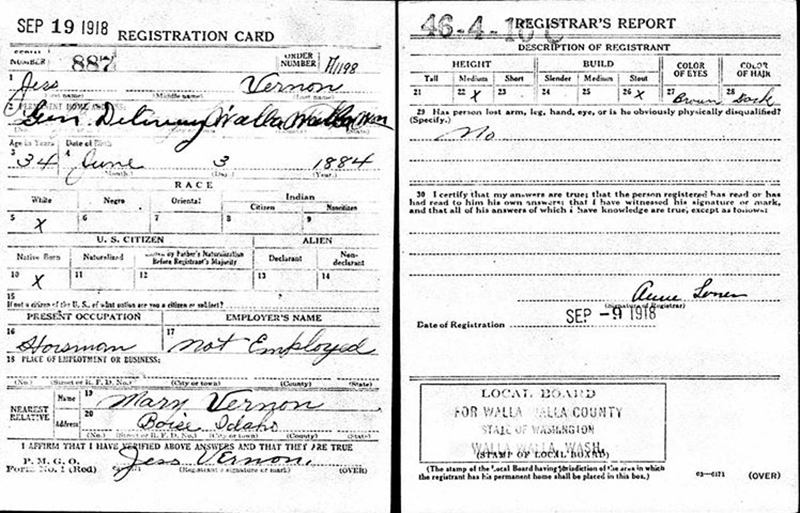 SEP 19 1918 REGISTRATION CARD
SERIAL NUMBER 887 ORDER NUMBER 1198
1 Jess Vernon
(First name) (Middle name) (Last name)
2 PERMANENT HOME ADDRESS:
Gen. Delivery Walla Walla Wn
(State)
Age in Years Date of Birth
3 34 4 June 3 1884
(Month.) (Day.) (Year.)
RACE
White Negro Oriental Indian
Citizen Noncitizen
5 X 6 7 8 9
U. S. CITIZEN ALIEN
Native Born Naturalized Citizen by Father's Naturalization Before Registrant's Majority Declarant Non-declarant
10 X 11 12 13 14
15
If not a citizen of the U. S., of what nation are you a citizen or subject?
PRESENT OCCUPATION EMPLOYER'S NAME
16 Horseman 17 Not Employed
18 PLACE OF EMPLOYMENT OR BUSINESS:
(No.) (Street or R. F. D. No.) (City or town) (County) (State)
NEAREST RELATIVE Name 19 Mary Vernon
Address 20 Boise Idaho
(No.) (Street or R. F. D. No.) (City or town) (County) (State)
I AFFIRM THAT I HAVE VERIFIED ABOVE ANSWERS AND THAT THEY ARE TRUE
P. M. G. O.
Form No. 1 (Red) Jess Vernon.
(Registrant's signature or mark) (OVER)
46-4-10 C REGISTRAR'S REPORT
DESCRIPTION OF REGISTRANT
HEIGHT BUILD COLOR OF EYES COLOR OF HAIR
Tall Medium Short Slender Medium Stout
21 22 X 23 24 25 26 X 27 Brown 28 Dark
29 Has person lost arm, leg, hand, eye, or is he obviously physically disqualified?
(Specify.)
No
30 I certify that my answers are true; that the person registered has read or has
had read to him his own answers; that I have witnessed his signature or mark,
and that all of his answers of which I have knowledge are true, except as follows:
(Signature of Registrar)
Date of Registration SEP -9 1918
LOCAL BOARD
FOR WALLA WALLA COUNTY
STATE OF WASHINGTON
WALLA WALLA, WASH.
(STAMP OF LOCAL BOARD)
(The stamp of the Local Board having jurisdiction of the area in which
the registrant has his permanent home shall be placed in this box.)
03-6171 (OVER)